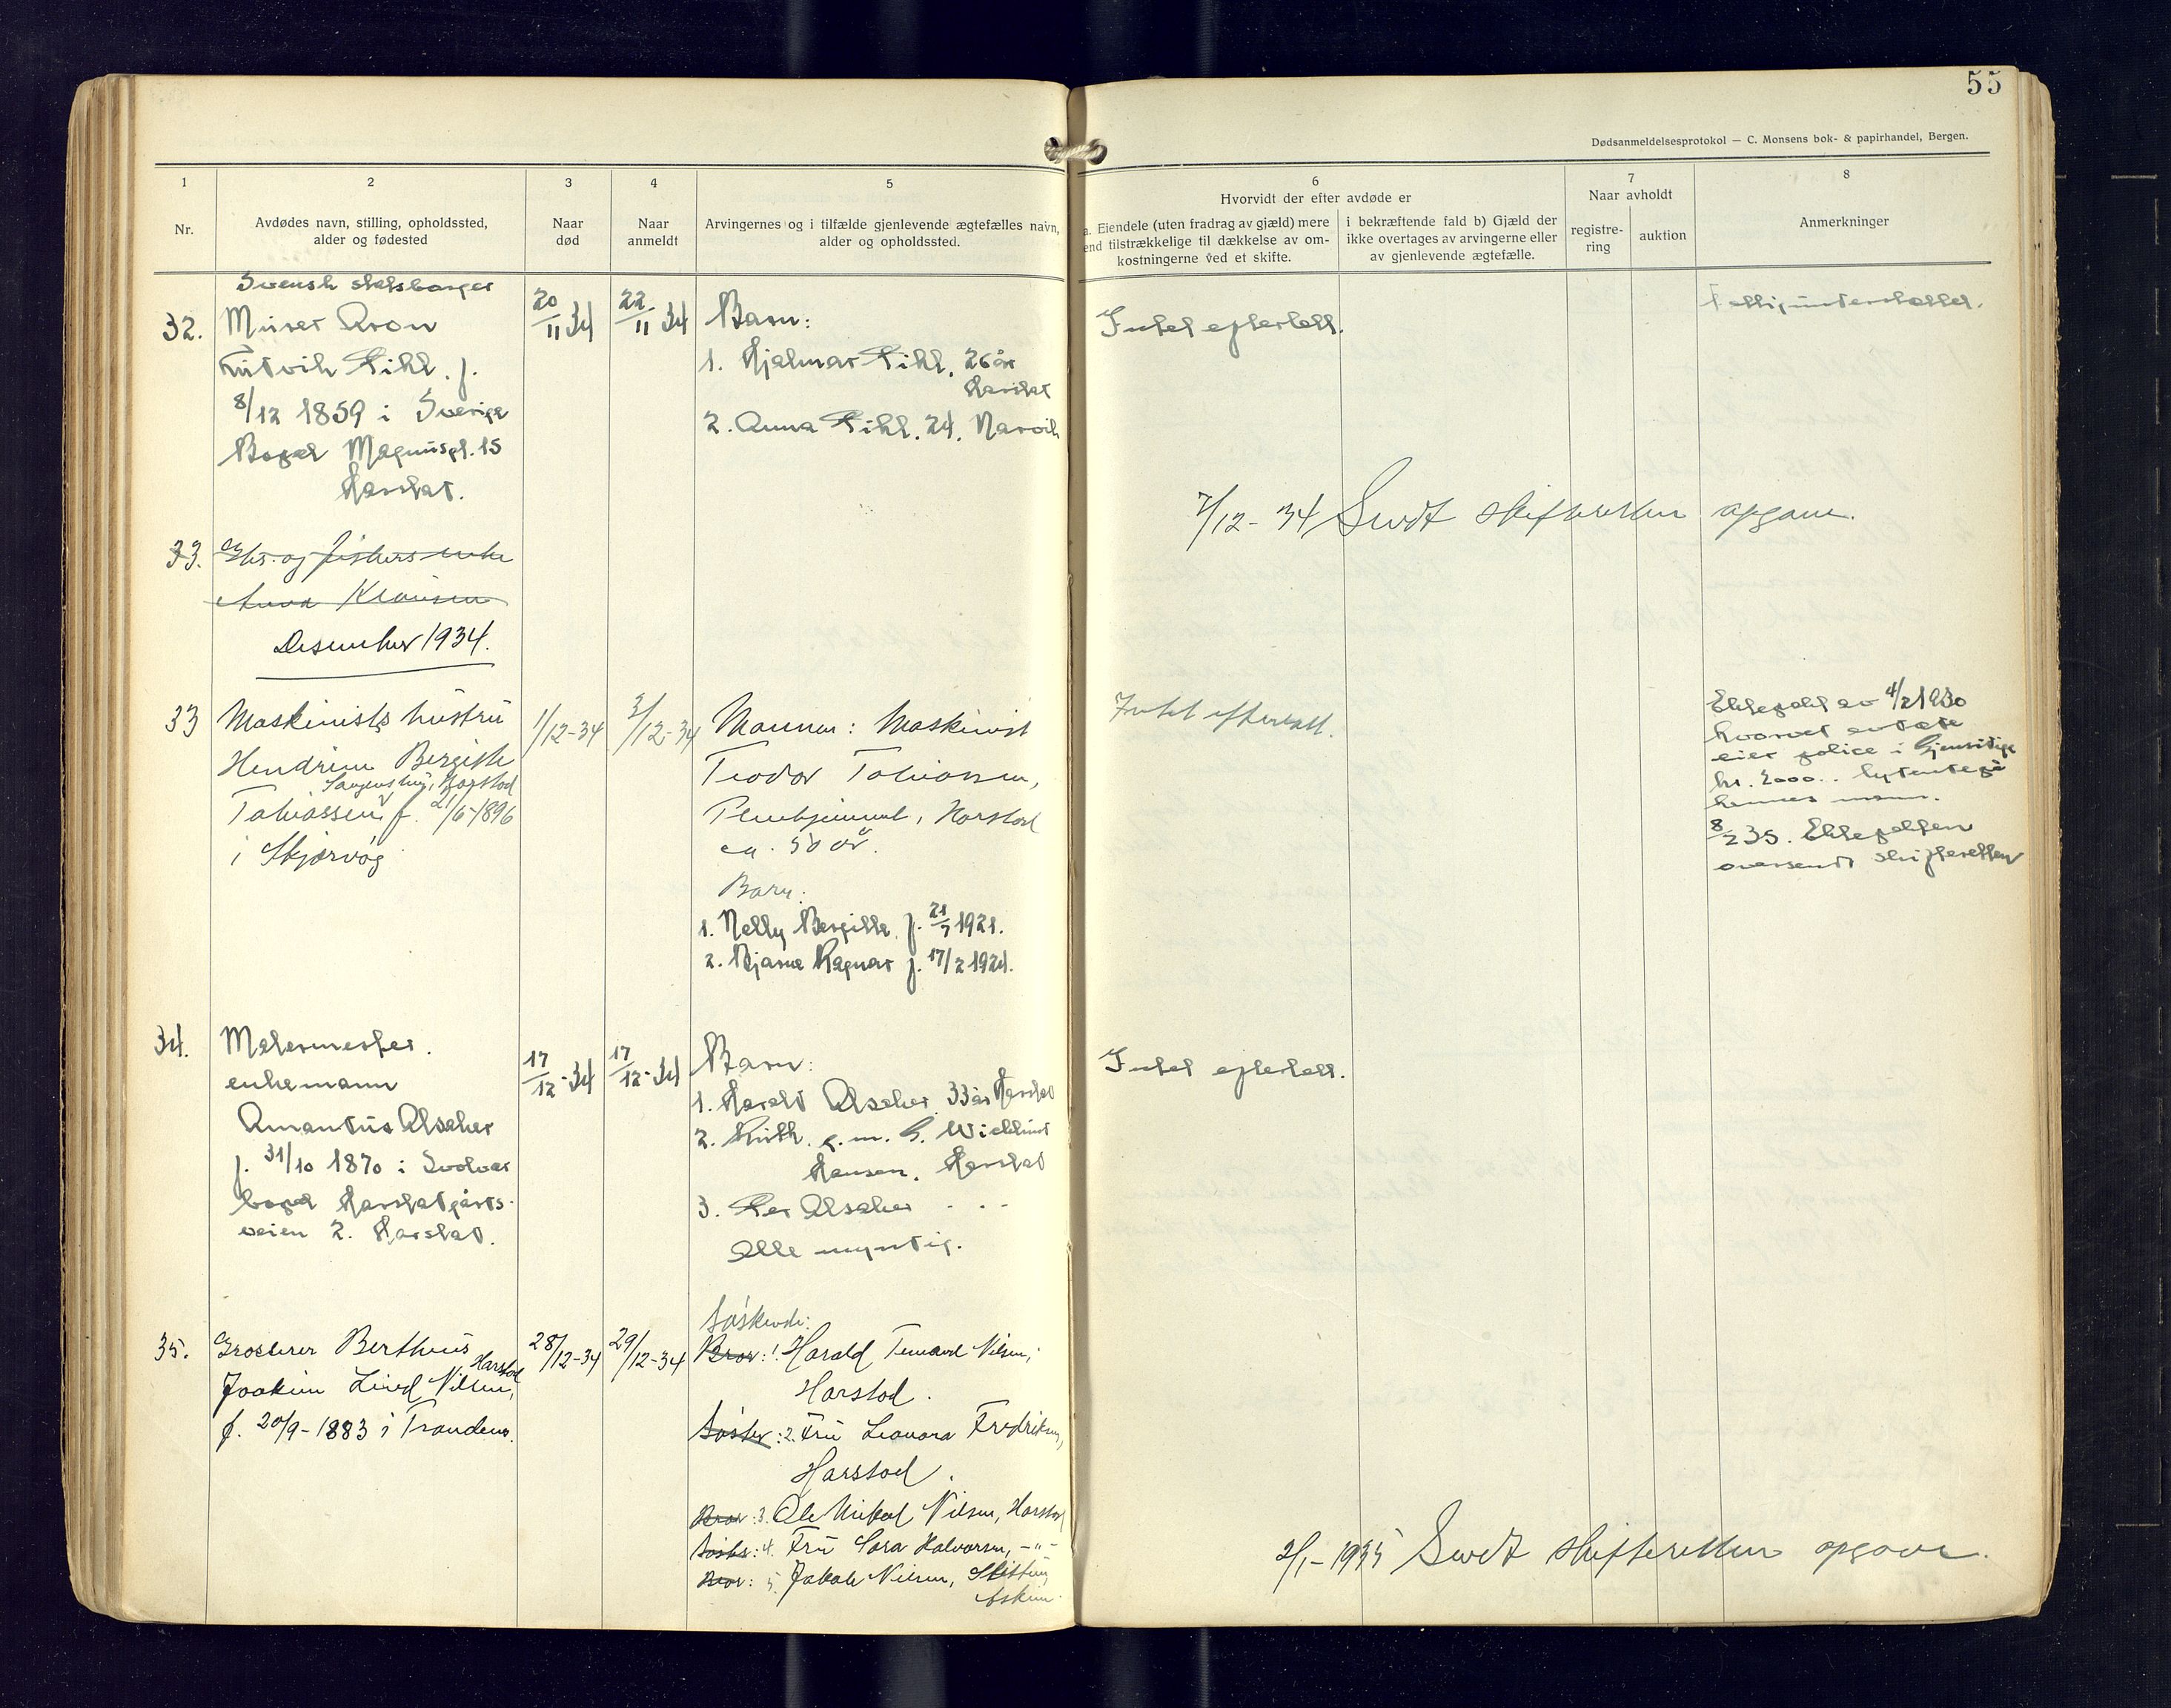 55
Dødsanmeldelsesprotokol — C. Monsens bok- & papirhandel, Bergen.
1
2
3
4
5
6
7
8
Nr.
Avdødes navn, stilling, opholdssted,
alder og fødested
Naar
død
Naar
anmeldt
Arvingernes og i tilfælde gjenlevende ægtefælles navn,
alder og opholdssted.
Hvorvidt der efter avdøde er
a. Eiendele (uten fradrag av gjæld) mere
end tilstrækkelige til dækkelse av om-
kostningerne ved et skifte.
i bekræftende fald b) Gjæld der
ikke overtages av arvingerne eller
av gjenlevende ægtefælle.
Naar avholdt
registre-
ring
auktion
Anmerkninger
Svensk statsborger
32. Murer Aron
Ludvik Pihl. f.
8/12 1859 i Sverige
Bopel Magnusgt. 15
Harstad.
20/11 34
22/11 34
Barn:
1. Hjalmar Pihl, 26 år
Harstad
2. Anna Pihl. 24. Narvik
Intet efterlatt.
Fattigunderstøttet.
7/12-34 Sendt skifteretten opgave.
33. Gbr. og fiskers enke
Anna Klausen
Desember 1934.
33 Maskinists hustru
Hendrine Bergitte
Harstad
Tobiassen f. 21/6-1896
i Skjærvøy
1/12-34
3/12-34
Mannen: Maskinist
Teodor Tobiassen,
Pleiehjemmet, Harstad
ca. 50 år.
Barn:
1. Nelly Bergitte f. 21/7 1921.
2. Bjarne Ragnar f. 17/2 1924.
Intet efterlatt.
Ektepakt av 4/2 1930
hvorved avdøde
eier police i Gjensidige
kr. 2000.. lydende på
hennes mann.
8/2 35. Ektepakten
oversendt skifteretten
34. Malermester.
enkemann
Amandus Alsaker
f. 31/10 1870 i Svolvær
bopel Harstadgårds-
veien 2. Harstad.
17/12-34
17/12-34
Barn:
1. Harald Alsaker 33 år Harstad
2. Ruth. g. m. G. Wicklund
Hansen. Harstad
3. Per Alsaker - - -
Alle myndig.
Intet efterlatt.
35. Grosserer Berthus
Harstad
Joakim Lind Nilsen,
f. 20/9-1883 i Trondenes.
28/12-34
29/12-34
Søskende:
Bror: 1. Harald Nilsen,
Harstad.
Søster: 2. Fru Leonora Fredriksen,
Harstad.
Bror: 3. Ole Mikal Nilsen, Harstad
Søster: 4. Fru Sara Halvorsen, -"-
Bror: 5. Jakob Nilsen,
Askim
2/1-1935 Sendt skifteretten opgave.